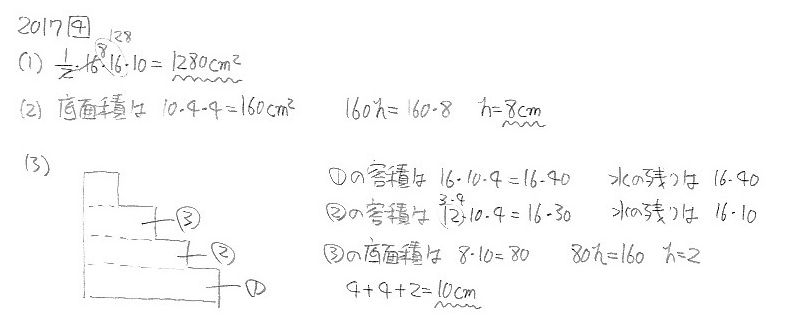 2017 4
128
8
(1) 1/2・16・16・10 = 1280cm²
(2) 底面積は 10・4・4=160cm² 160h=160・8 h=8cm
(3)
①の容積は 16・10・4=16・40 水の残りは 16・40
3・4
②の容積は 12・10・4=16・30 水の残りは 16・10
③の底面積は 8・10=80 80h=160 h=2
4+4+2=10cm
③
②
①